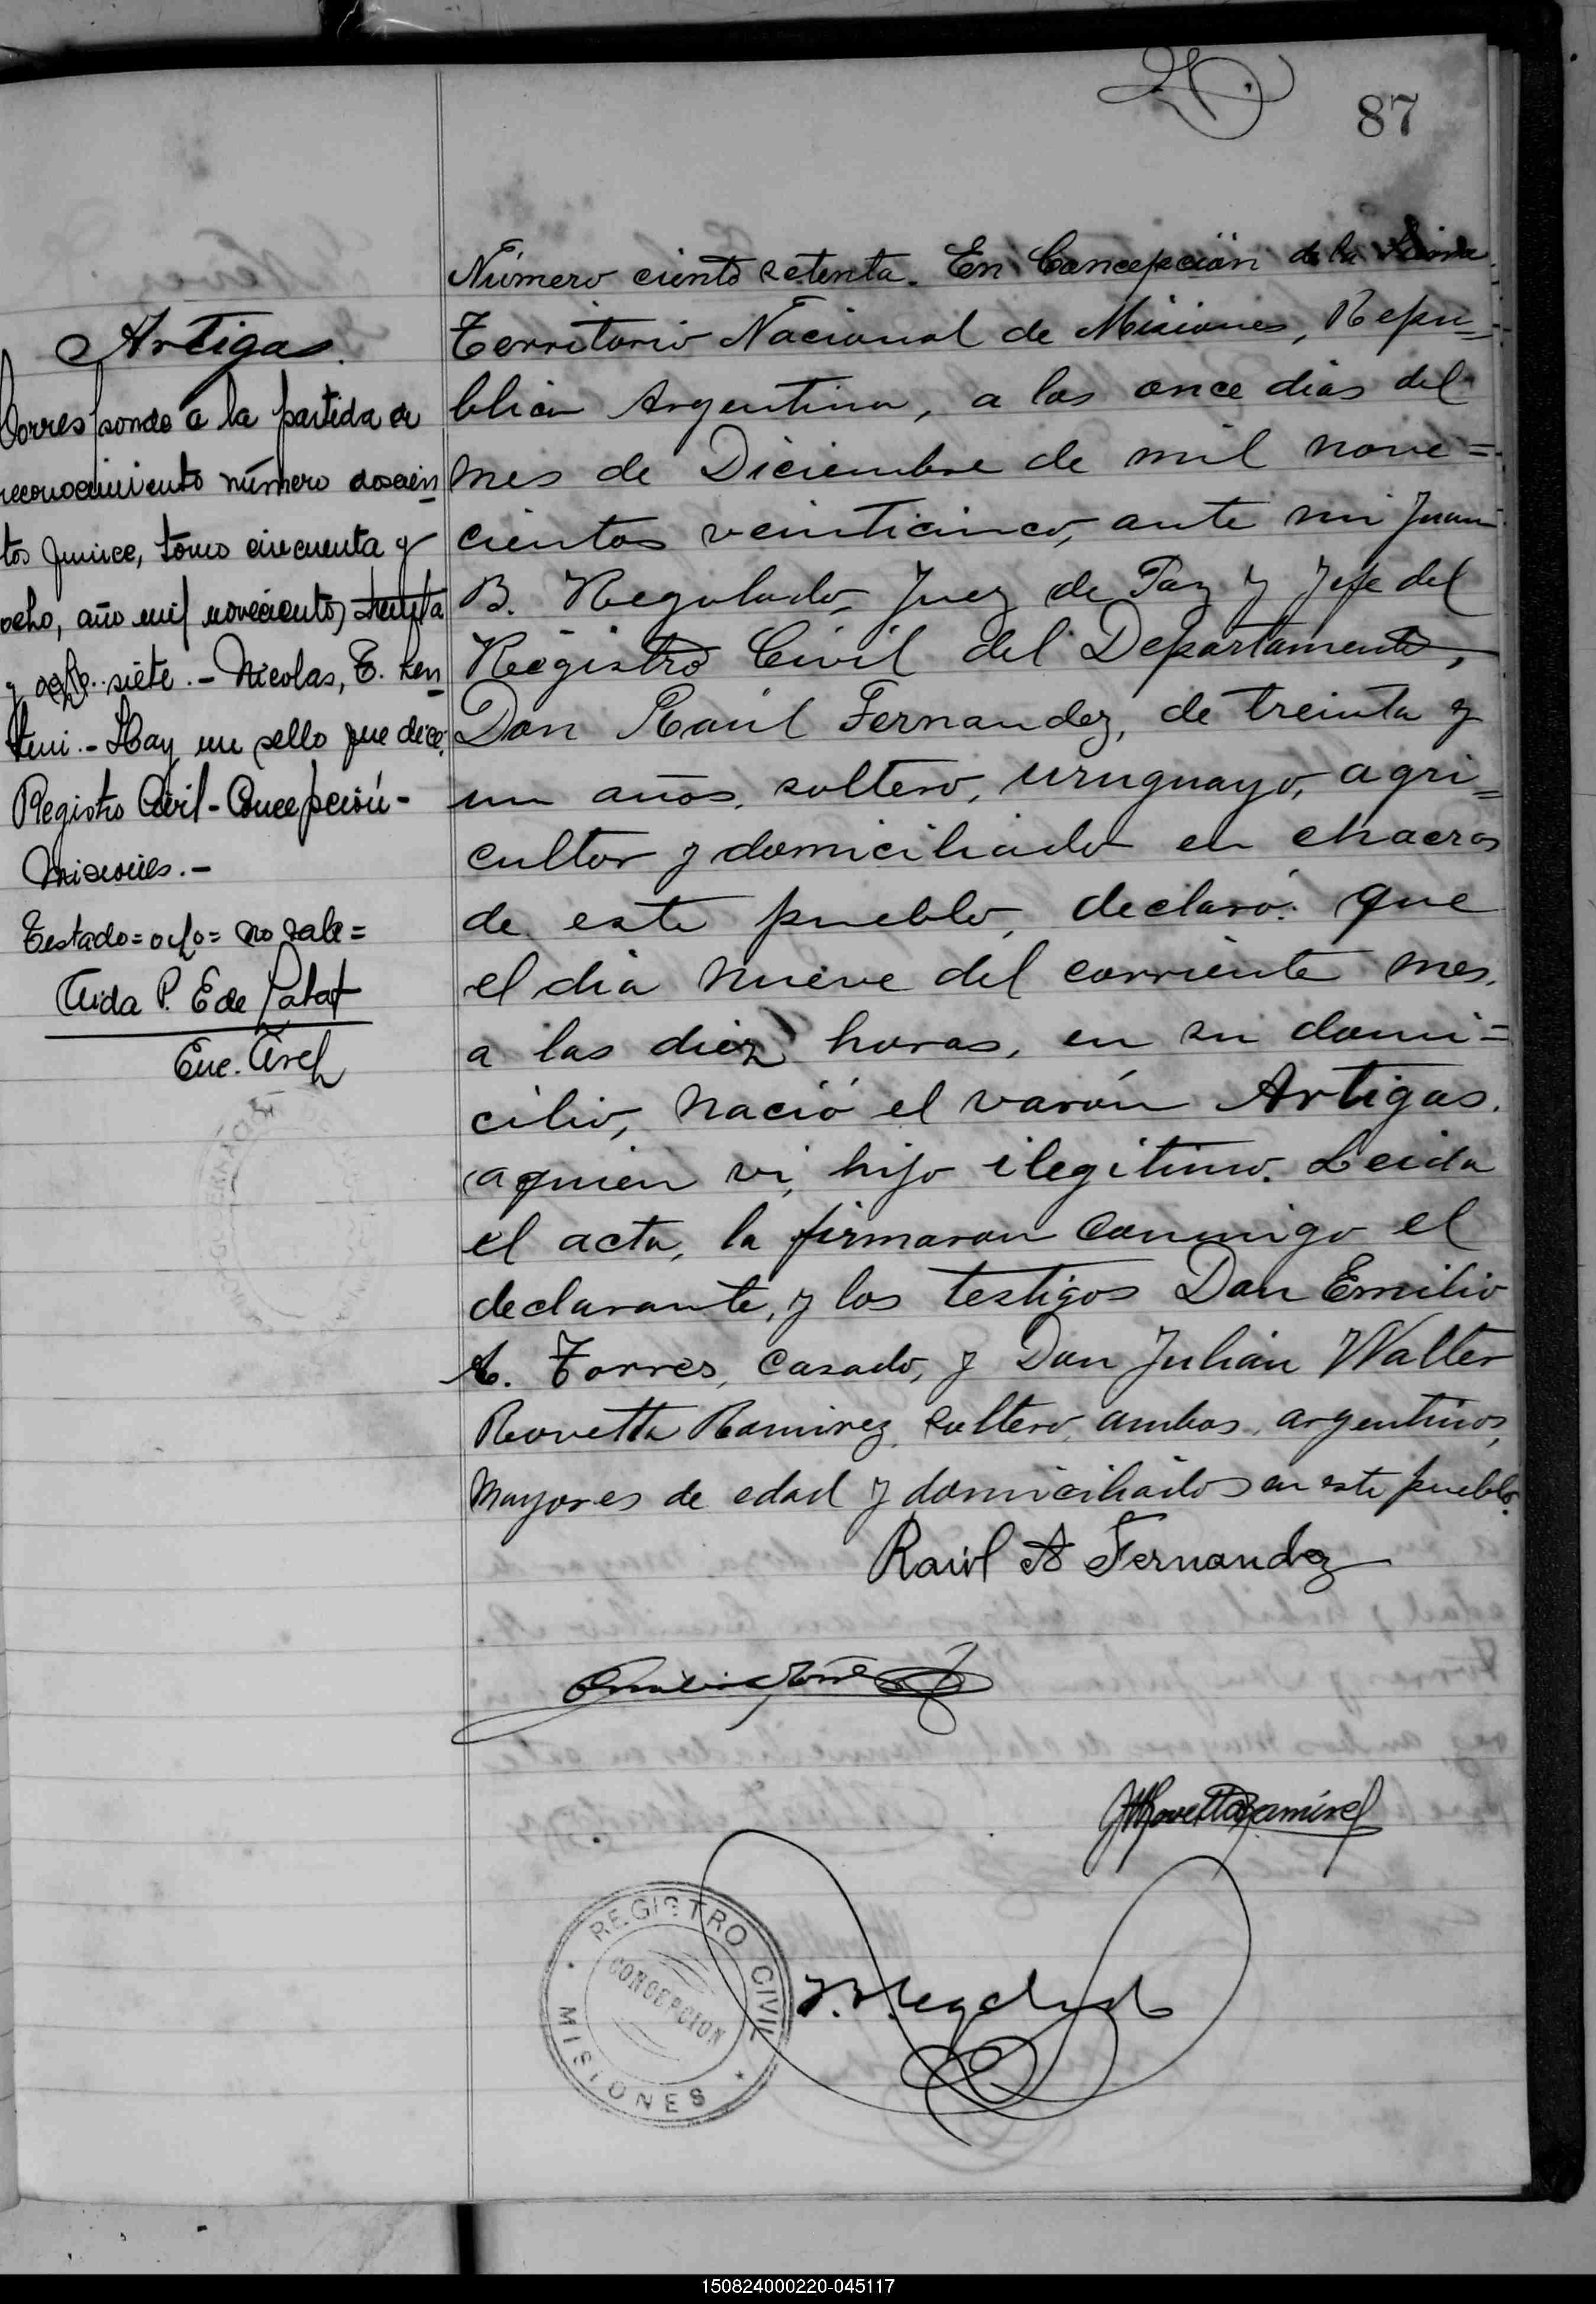 87
Artigas.
Corresponde a la partida de
reconocimiento número doscien
tos quince, tomo cincuenta y
ocho, año mil novecientos treinta
y ocho siete.- Nicolas, E.
Hay un sello que dice
Registro Civil - Concepción -
Misiones.-
Testado = ocho = no vale =
Aida P. E de
Enc. Arch
Número ciento setenta. En Concepción de la Sierra
Territorio Nacional de Misiones, Repu=
blica Argentina, a los once dias del
mes de Diciembre de mil nove=
cientos veinticinco, ante mi Juan
B. Regulado, Juez de Paz y Jefe del
Registro Civil del Departamento,
Don Raúl Fernandez, de treinta y
un años, soltero, uruguayo, agri=
cultor y domiciliado en chacras
de este pueblo, declaró: que
el dia nueve del corriente mes,
a las diez horas, en su domi=
cilio, nació el varón Artigas.
a quien vi, hijo ilegitimo. Leida
el acta, la firmaron conmigo el
declarante, y los testigos Don Emilio
A. Torres, casado, y Don Julián Walter
Rovetta Ramirez, soltero, ambos argentinos,
mayores de edad y domiciliados en este pueblo.
Raúl A Fernandez
Emilio Torres
JWRovettaRamirez
REGISTRO CIVIL
CONCEPCION
MISIONES
J. B. Regulado
150824000220-045117